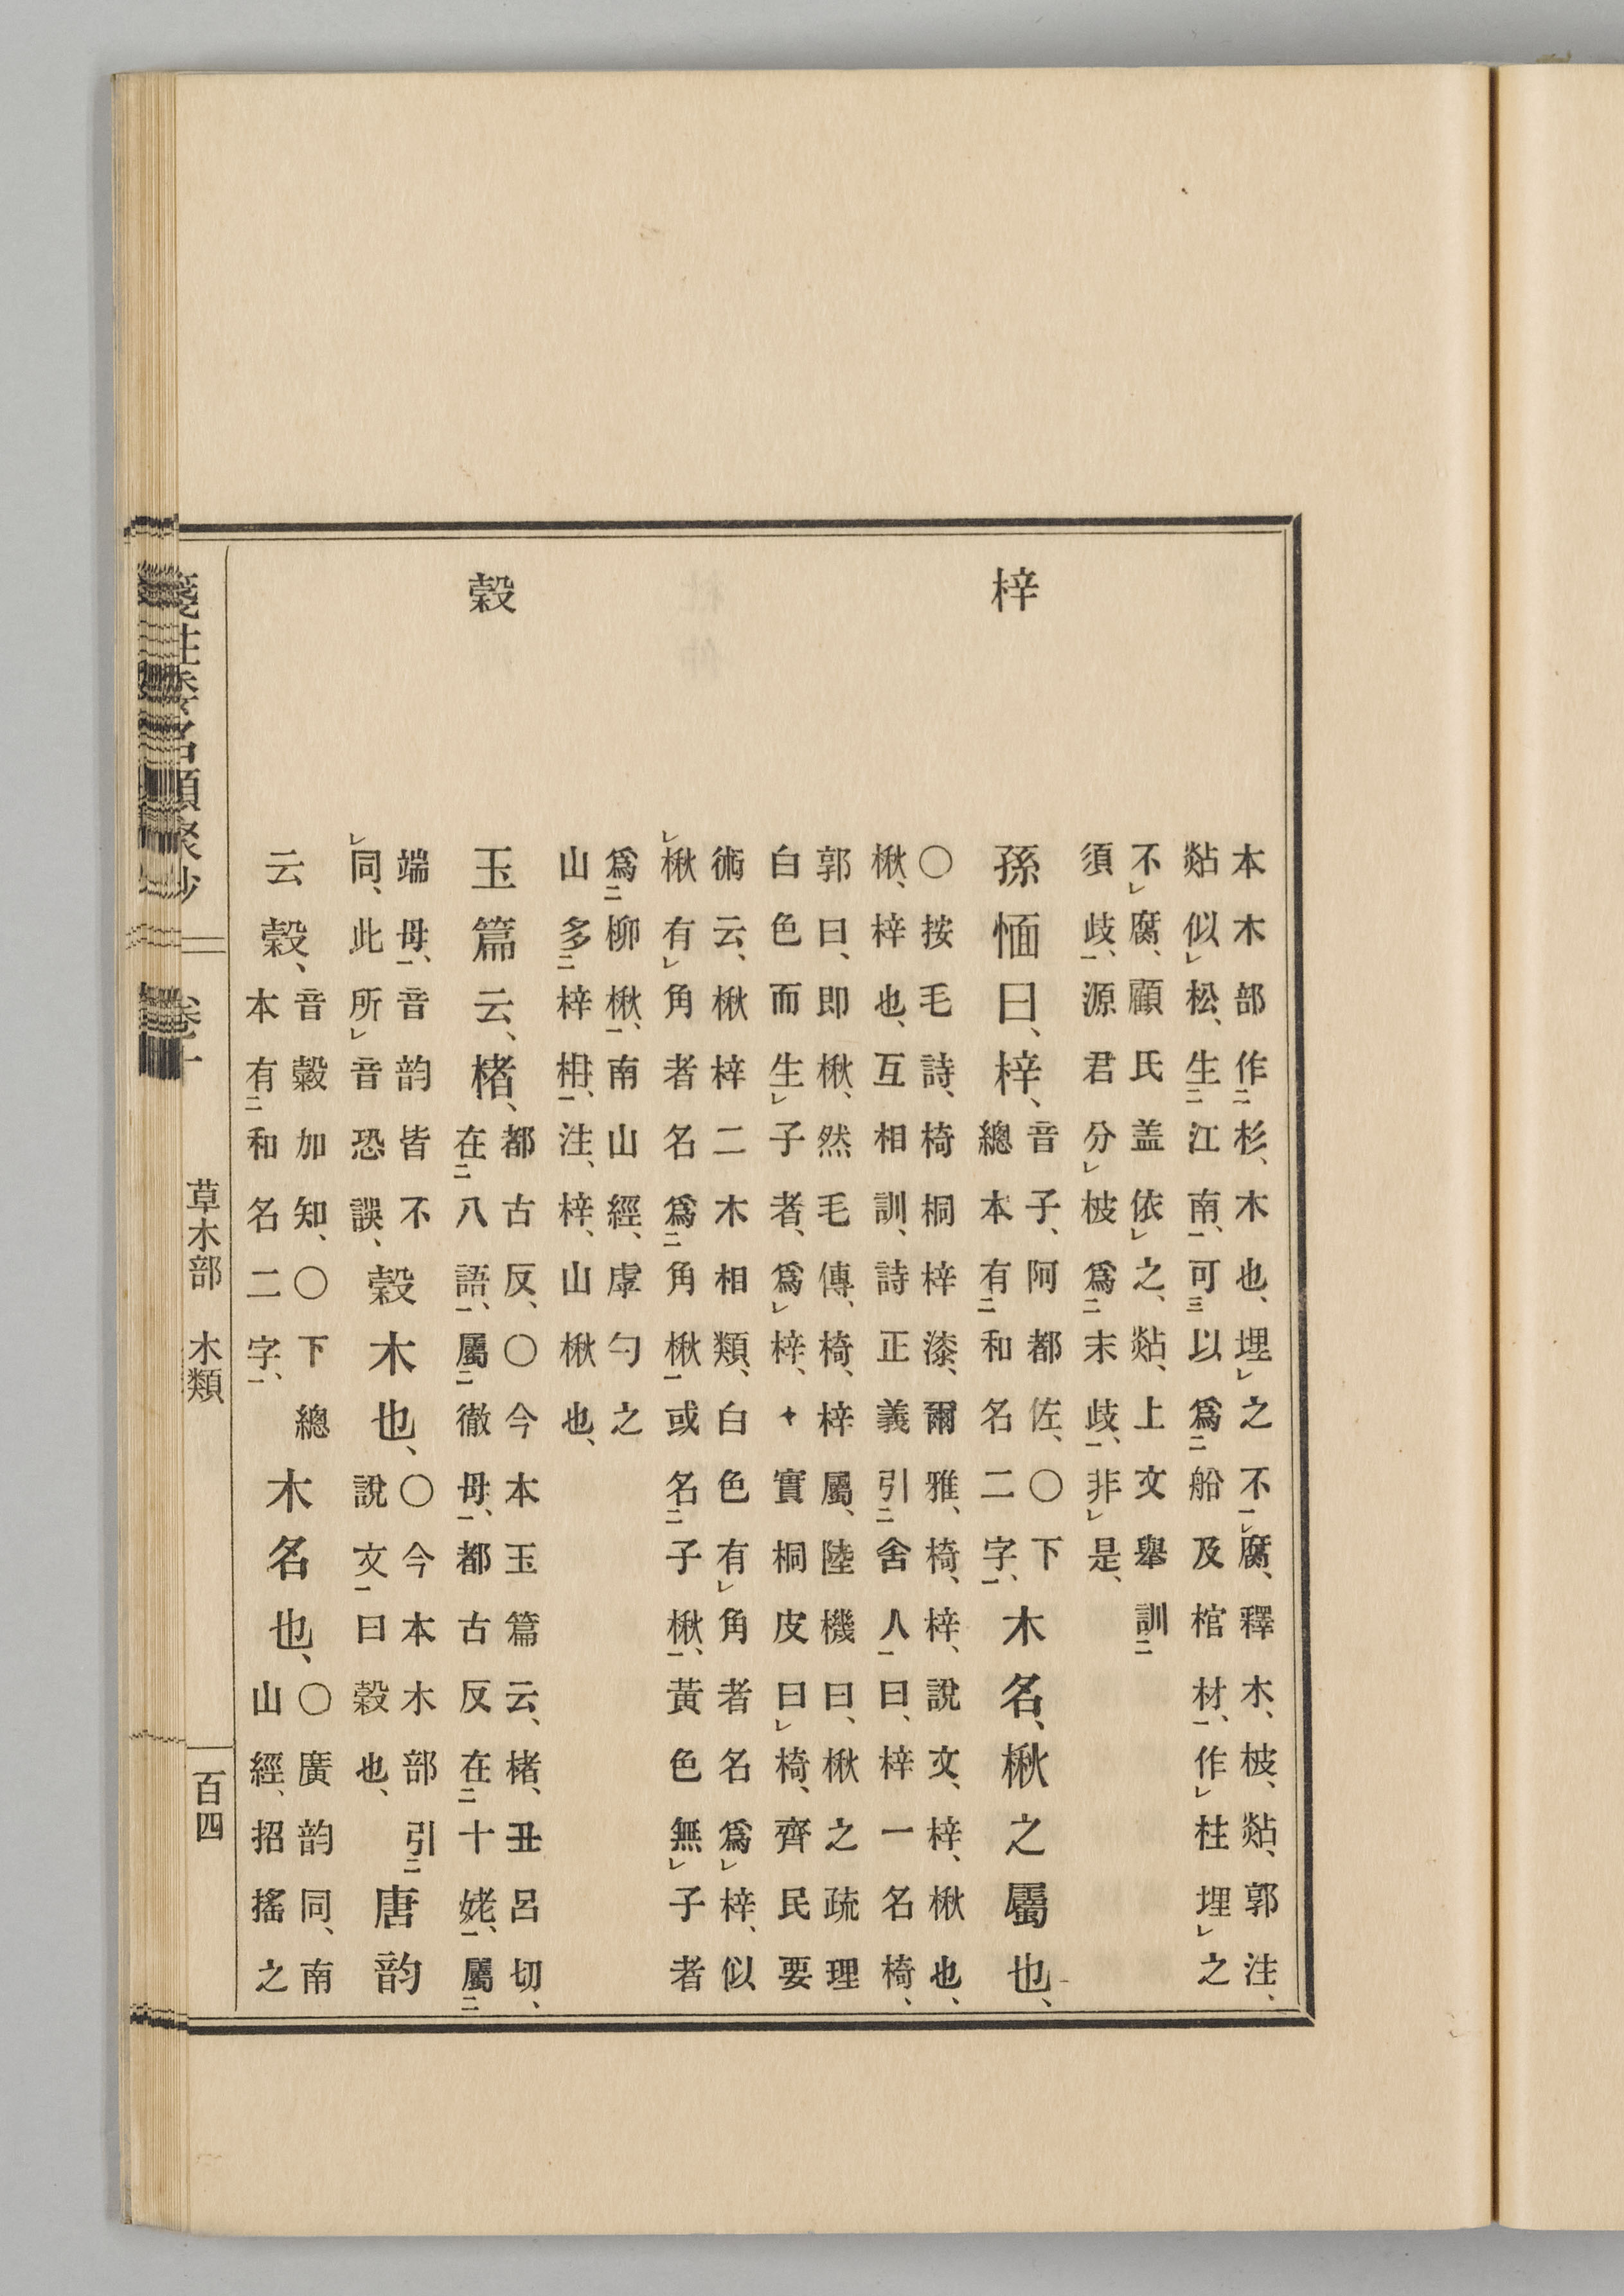 本木部作㆓杉、木也、埋㆑之不㆒㆑腐、釋木、柀、煔、郭注、
煔似㆑松、生㆓江南㆒、可㆔以爲㆓船及棺材㆒、作㆑柱埋㆑之
不㆑腐、顧氏盖依㆑之、煔、上文擧訓㆓
須歧㆒、源君分㆑柀爲㆓末歧㆒、非㆑是、
梓
孫愐曰、梓、
音子、阿都佐、〇下
總本有㆓和名二字㆒、
木名、楸之屬也、
〇按毛詩、椅桐梓漆、爾雅、椅、梓、說文、梓、楸也、
楸、梓也、互相訓、詩正義引㆓舍人㆒曰、梓一名椅、
郭曰、即楸、然毛傳、椅、梓屬、陸機曰、楸之疏理
白色而生㆑子者、爲㆑梓、實桐皮曰㆑椅、齊民要
術云、楸梓二木相類、白色有㆑角者名爲㆑梓、似
㆑楸有㆑角者名爲㆓角楸㆒或名㆓子楸㆒、黃色無㆑子者
爲㆓柳楸㆒、南山經、虖勺之
山多㆓梓枏㆒、注、梓、山楸也、
穀
玉篇云、楮、
都古反、〇今本玉篇云、楮、丑呂切、
在㆓八語㆒、屬㆓徹母㆒、都古反在㆓十姥㆒、屬㆓
端母㆒、音韵皆不
㆑同、此所㆑音恐誤、
穀木也、
〇今本木部引㆓
說文㆒曰穀也、
唐韵
云穀、
音糓加知、〇下總
本有㆓和名二字㆒、
木名也、
〇廣韵同、南
山經、招搖之
箋注倭名類聚抄 卷十 草木部 木類 百四